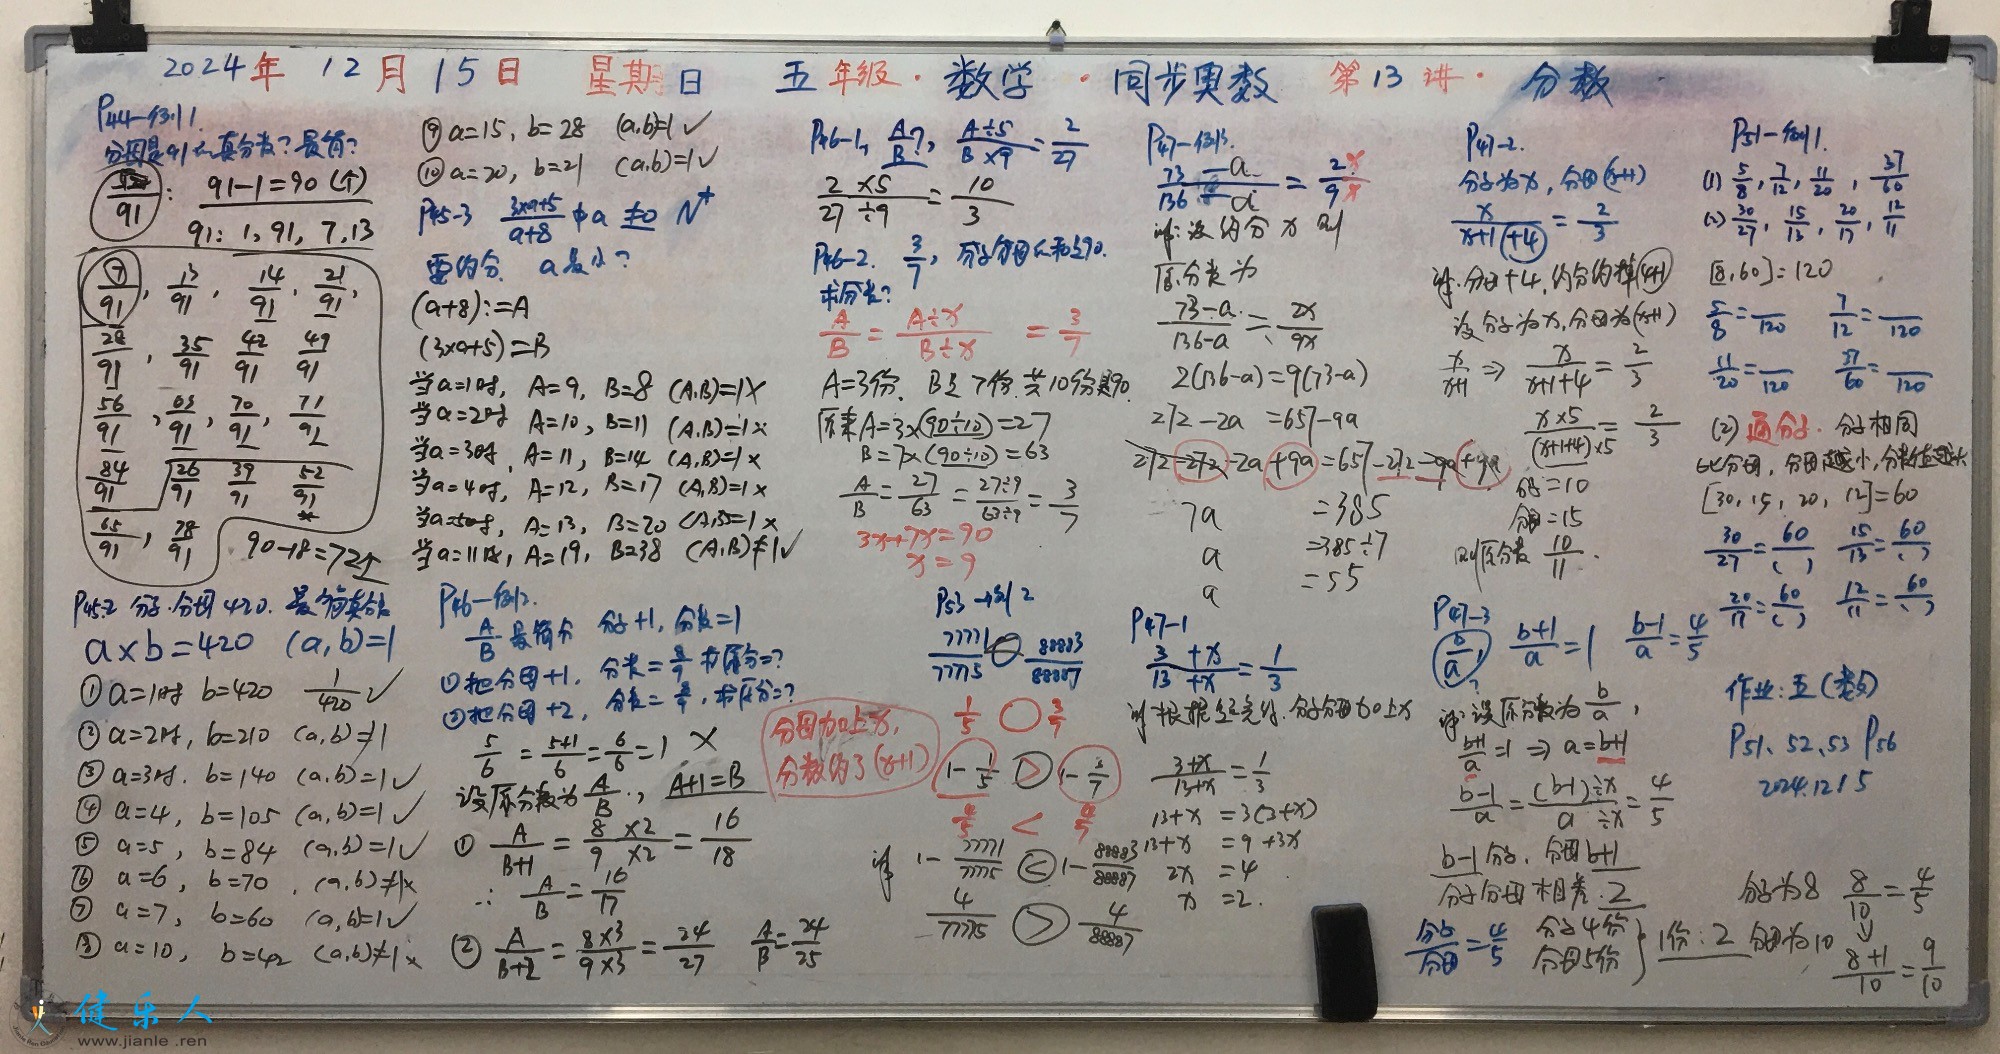 2024年 12月15日 星期日 五年级·数学·同步奥数 第13讲·分数
P44-例1.
分母是91的真分数?最简?
/91: 91-1=90(个)
91: 1, 91, 7, 13
7/91, 13/91, 14/91, 21/91,
28/91, 35/91 42/91 49/91
56/91, 63/91, 70/91, 71/91
84/91 26/91 39/91 52/91
65/91, 78/91 90-18=72个
P45-2 分子·分母420. 最简真分数
a×b=420 (a,b)=1
① a=1时 b=420 1/420 ✓
② a=2时, b=210 (a,b)≠1
③ a=3时. b=140 (a,b)=1✓
④ a=4, b=105 (a,b)=1✓
⑤ a=5, b=84 (a,b)=1✓
⑥ a=6, b=70, (a,b)≠1×
⑦ a=7, b=60 (a,b)=1✓
⑧ a=10, b=42 (a,b)≠1×
⑨ a=15, b=28 (a,b)=1✓
⑩ a=20, b=21 (a,b)=1✓
P45-3 3×a+5/a+8 中a ≠0 N⁺
要约分. a最小?
(a+8):=A
(3×a+5)=B
当a=1时, A=9, B=8 (A,B)=1×
当a=2时 A=10, B=11 (A,B)=1×
当a=3时, A=11, B=14 (A,B)=1×
当a=4时, A=12, B=17 (A,B)=1×
当a=5时, A=13, B=20 (A,B)=1×
当a=11时, A=19, B=38 (A,B)≠1✓
P46-例2.
A/B 最简分 分子+1, 分数=1
①把分母+1, 分数=8/9 求原分=?
②把分母+2, 分数=8/9, 求原分=?
5/6 = 5+1/6 = 6/6 = 1 ×
设原分数为A/B, A+1=B
① A/B+1 = 8×2/9×2 = 16/18
∴ A/B = 16/17
② A/B+2 = 8×3/9×3 = 24/27 A/B = 24/25
P46-1, A/B?, A÷5/B×9 = 2/27
2×5/27÷9 = 10/3
P46-2. 3/7, 分子分母的和是90.
求分数?
A/B = A÷x/B÷x = 3/7
A=3份. B是7份 共10份是90
原来A=3×(90÷10)=27
B=7×(90÷10)=63
A/B = 27/63 = 27÷9/63÷9 = 3/7
3x+7x=90
x=9
分母加上x,
分数约了(x+1)
P53-例2
77771/77775 ○ 88883/88887
1/5 ○ 3/7
1-1/5 > 1-3/7
4/5 < 4/7
解 1-77771/77775 < 1-88883/88887
4/77775 > 4/88887
P47-例3.
73-a/136-a = 2x/9x
解:设约分x 则
原分数为
73-a/136-a = 2x/9x
2(136-a)=9(73-a)
272-2a =657-9a
272-272-2a+9a=657-272-9a+9a
7a =385
a =385÷7
a =55
P47-1
3+x/13+x = 1/3
解 根据 分子分母加上x
3+x/13+x = 1/3
13+x = 3(3+x)
13+x = 9+3x
2x = 4
x =2.
P47-2.
分子为x, 分母(x+1)
x/x+1+4 = 2/3
解:分母+4, 约分约掉
设分子为x, 分母为(x+1)
x/x+1 ⇒ x/x+1+4 = 2/3
x×5/(x+1+4)×5 = 2/3
分子=10
分母=15
则原分数 10/11.
P47-3
b/a, b+1/a = 1 b-1/a = 4/5
?
解:设原分数为b/a,
b+1/a =1 ⇒ a=b+1
b-1/a = (b-1)÷x/a÷x = 4/5
b-1分子, 分母b+1
分子分母相差.2
分子/分母 = 4/5 分子4份 分母5份 } 1份:2
分子为8 8/10 = 4/5
分母为10
8+1/10 = 9/10
P51-例1.
(1) 5/8, 7/12, 11/20, 37/60
(2) 30/27, 15/13, 20/17, 12/11
[8,60]=120
5/8= /120 7/12= /120
11/20= /120 37/60= /120
(2) 通分子. 分子相同
比分母, 分母越小, 分数值越大
[30, 15, 20, 12]=60
30/27=60/( ) 15/13=60/( )
20/17=60/( ) 12/11=60/( )
作业:五(数)
P51、52、53 P56
2024.12.15
健乐人
www.jianle.ren